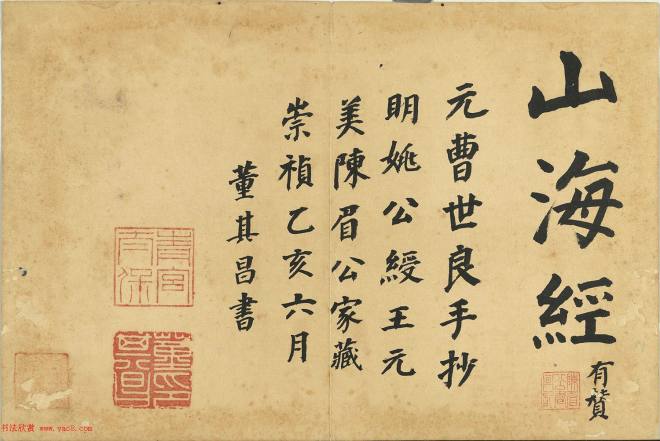 山海經
有贊
元曹世良手抄
明姚公綬王元
美陳眉公家藏
崇禎乙亥六月
董其昌書
青宮太保
董其昌印
书法欣赏 www.yac8.com